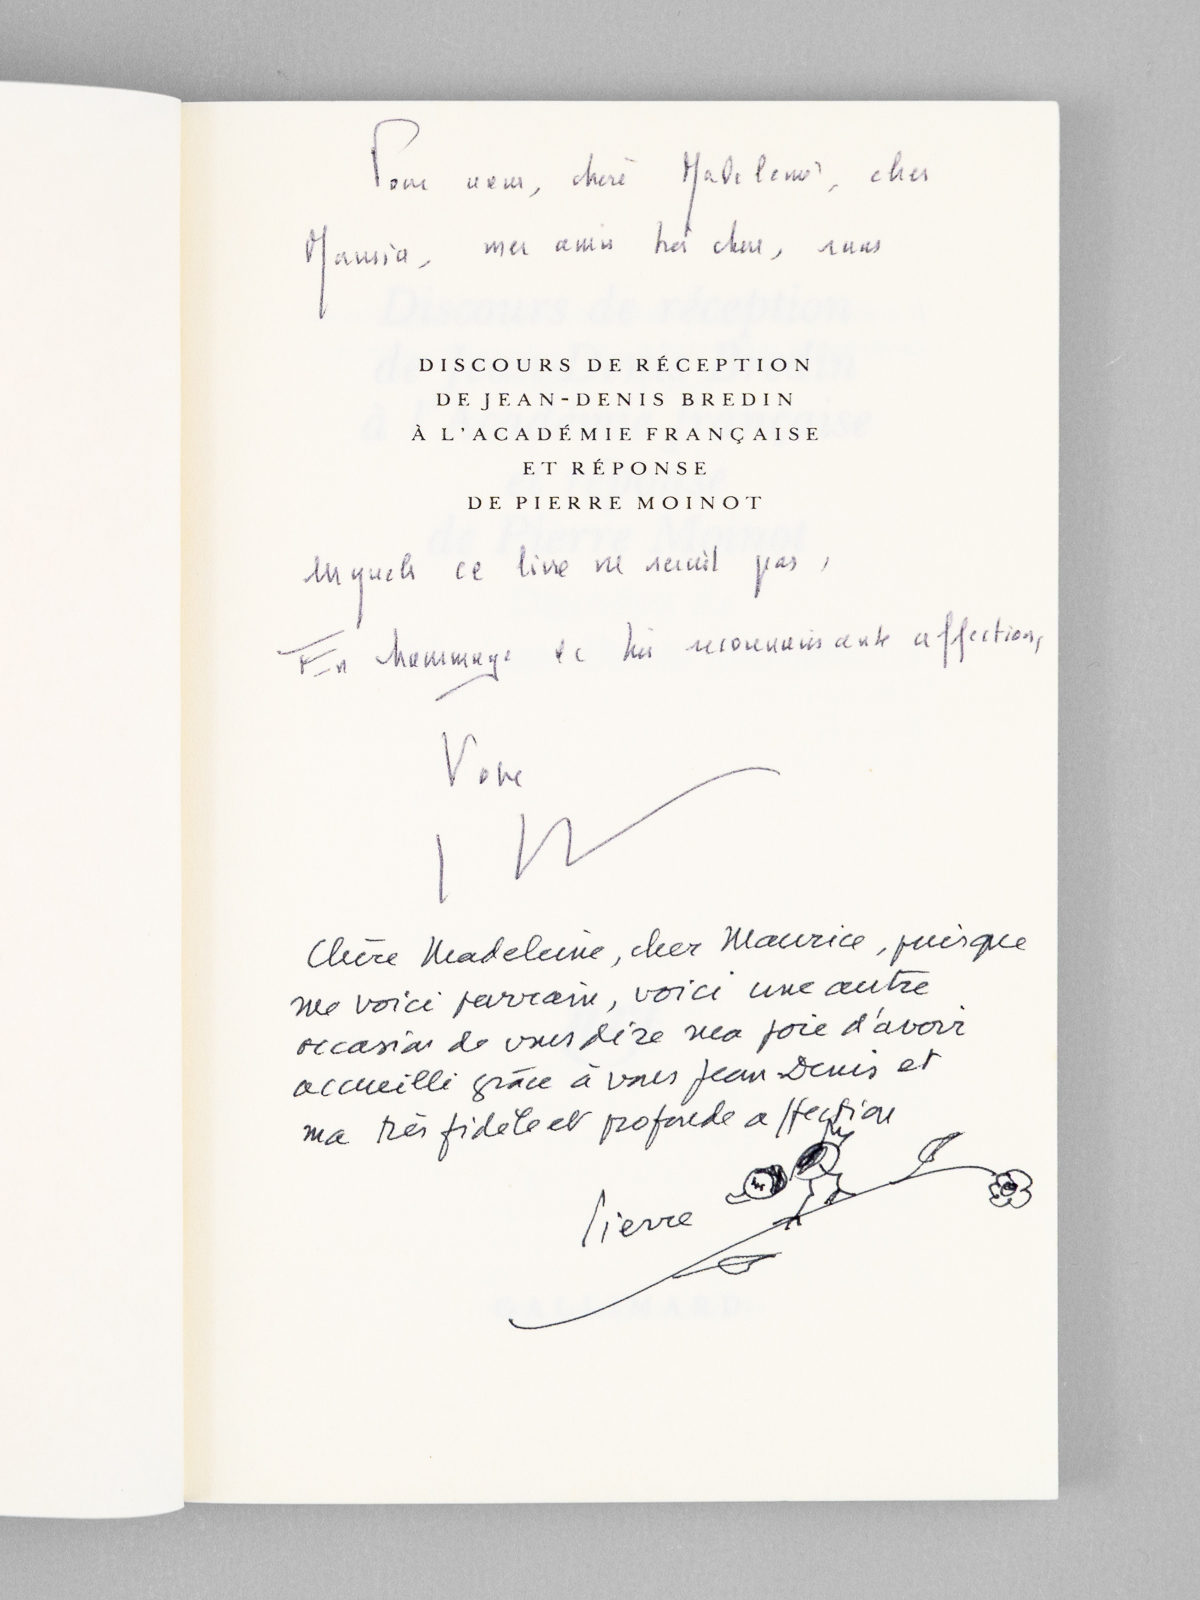 Pour vous, chère Madeleine, cher
Maurice, mes amis très chers, sans
DISCOURS DE RÉCEPTION
DE JEAN-DENIS BREDIN
À L'ACADÉMIE FRANÇAISE
ET RÉPONSE
DE PIERRE MOINOT
lesquels ce livre ne serait pas,
En hommage de très reconnaissante affection,
Votre
Chère Madeleine, cher Maurice, puisque
me voici parrain, voici une autre
occasion de vous dire ma joie d'avoir
accueilli grâce à vous Jean-Denis et
ma très fidèle et profonde affection
Pierre
Discours de réception
de Jean-Denis Bredin
à l'Académie française
et réponse
de Pierre Moinot
GALLIMARD